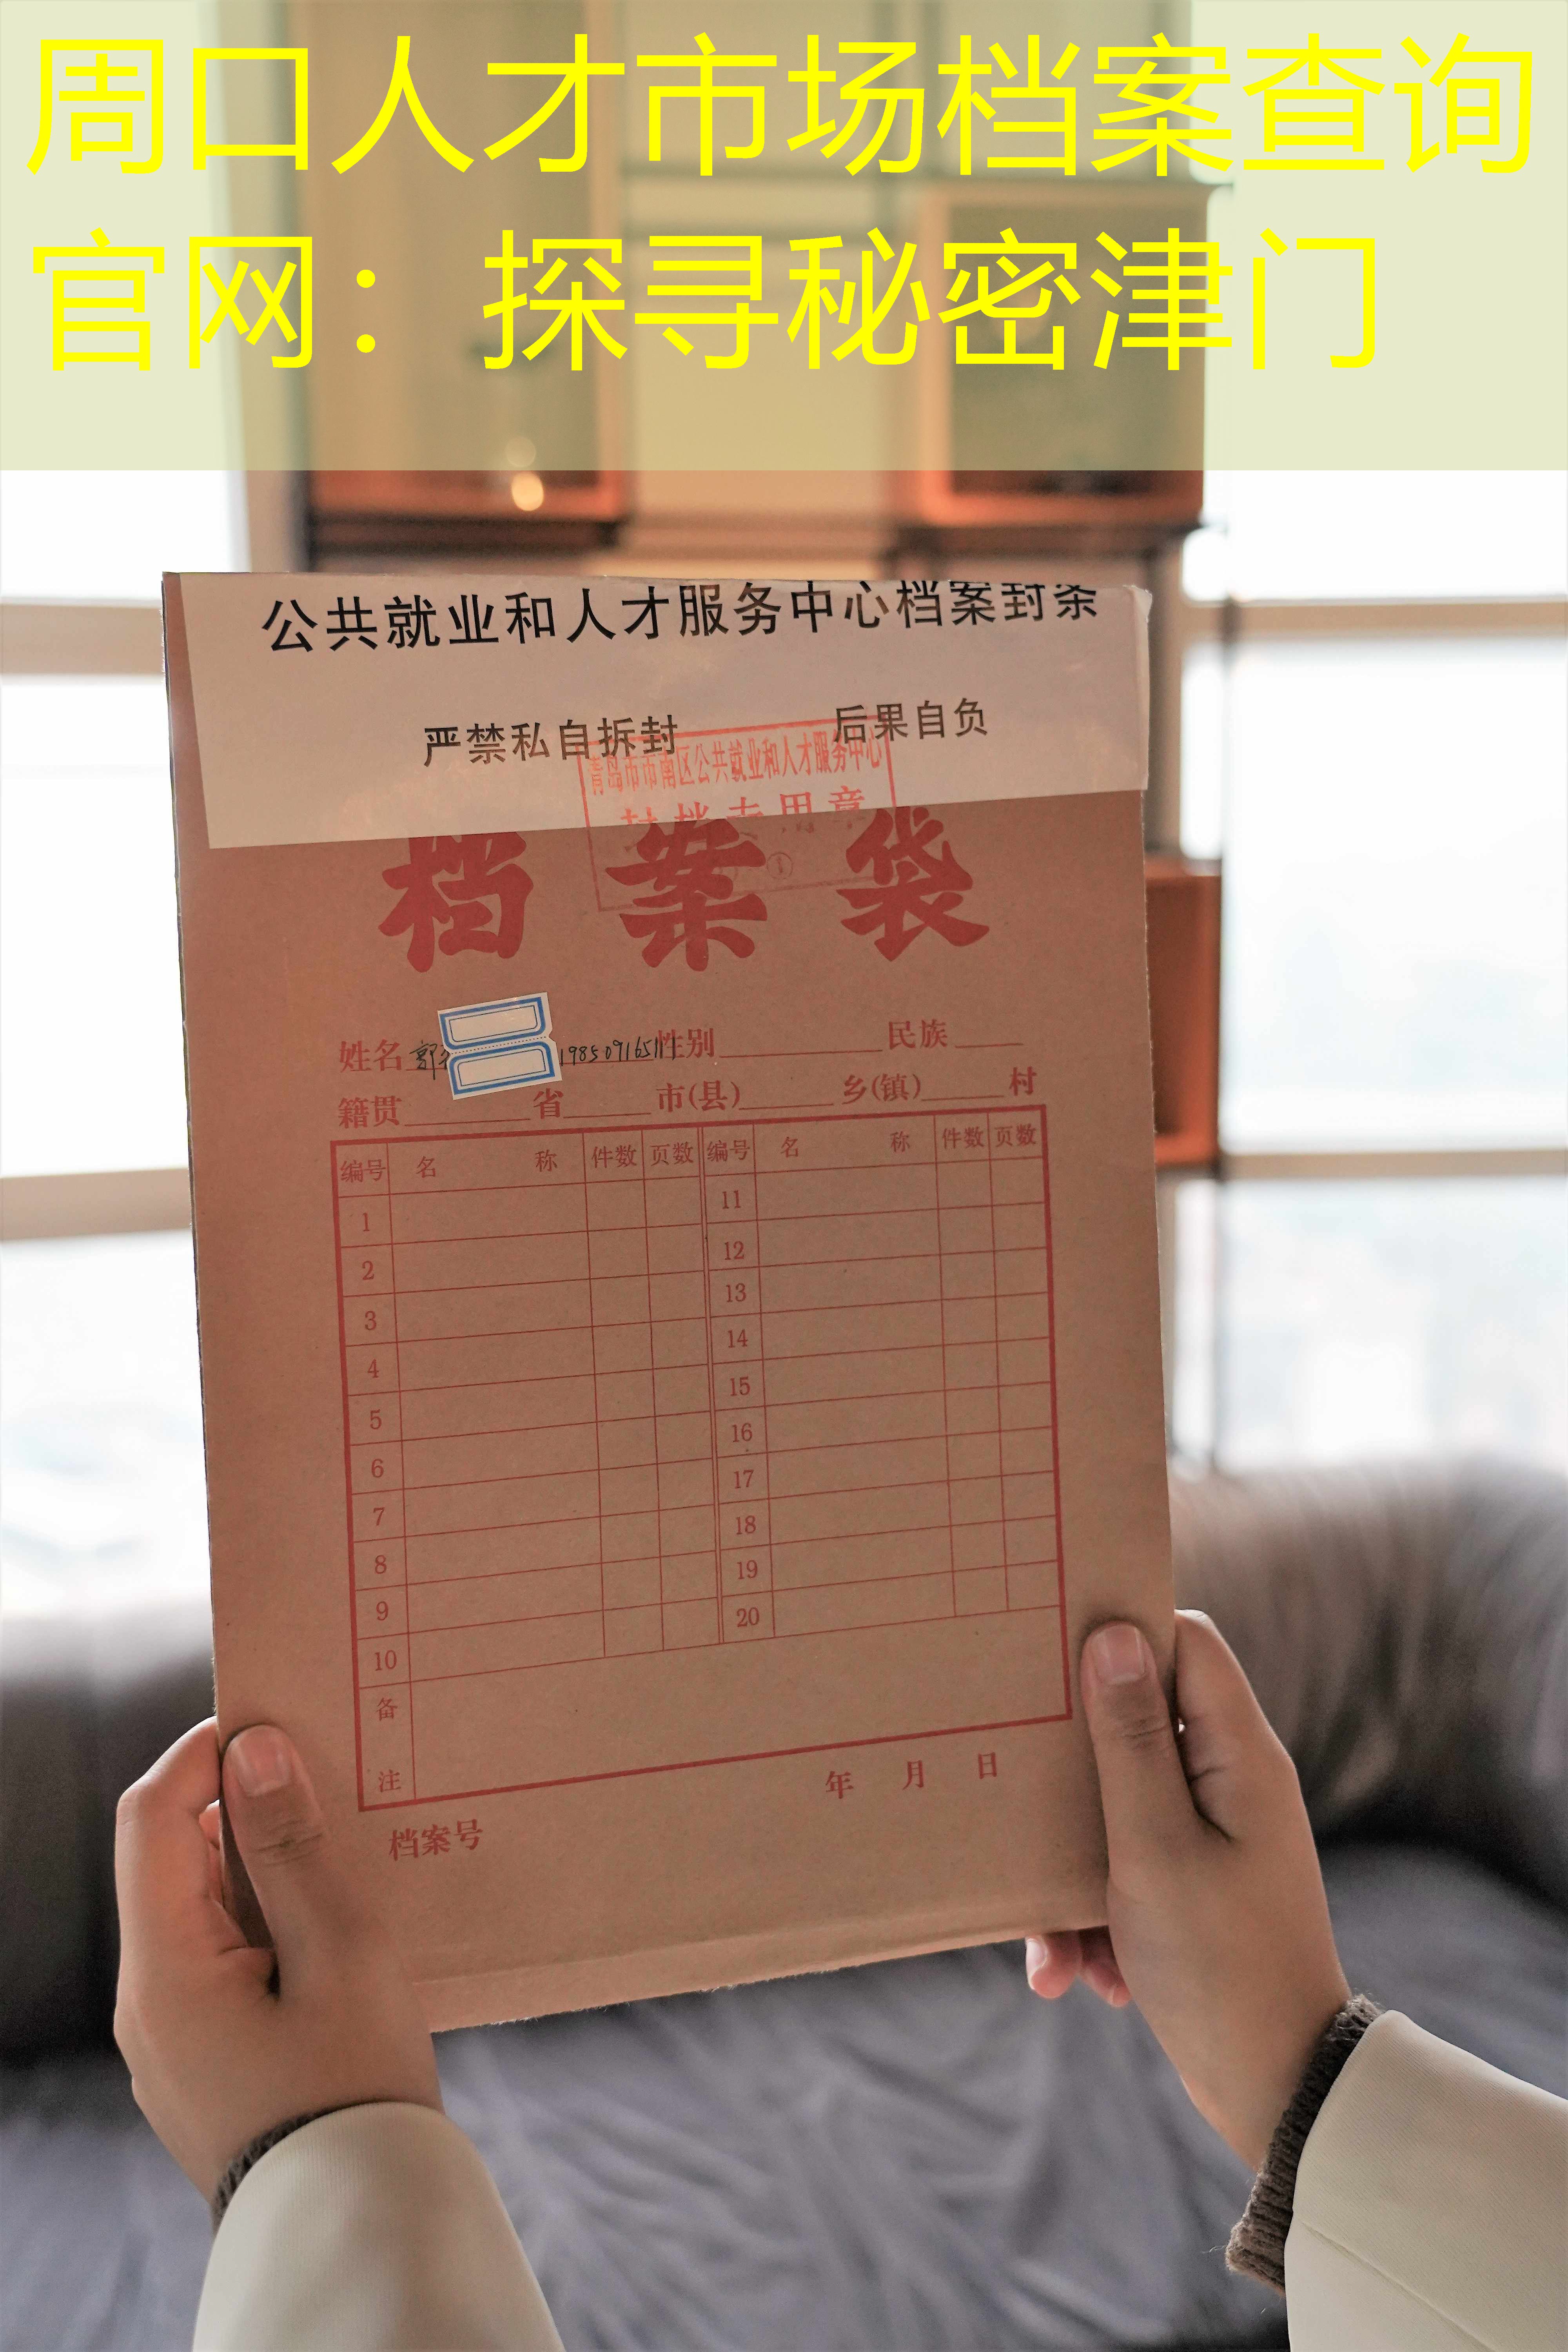 周口人才市场档案查询
官网：探寻秘密津门
公共就业和人才服务中心档案封条
严禁私自拆封 后果自负
青岛市市南区公共就业和人才服务中心
封档专用章
档案袋
姓名 郭 198509165111 性别 民族
籍贯 省 市(县) 乡(镇) 村
编号 名 称 件数 页数 编号 名 称 件数 页数
1 11
2 12
3 13
4 14
5 15
6 16
7 17
8 18
9 19
10 20
备
注
年 月 日
档案号